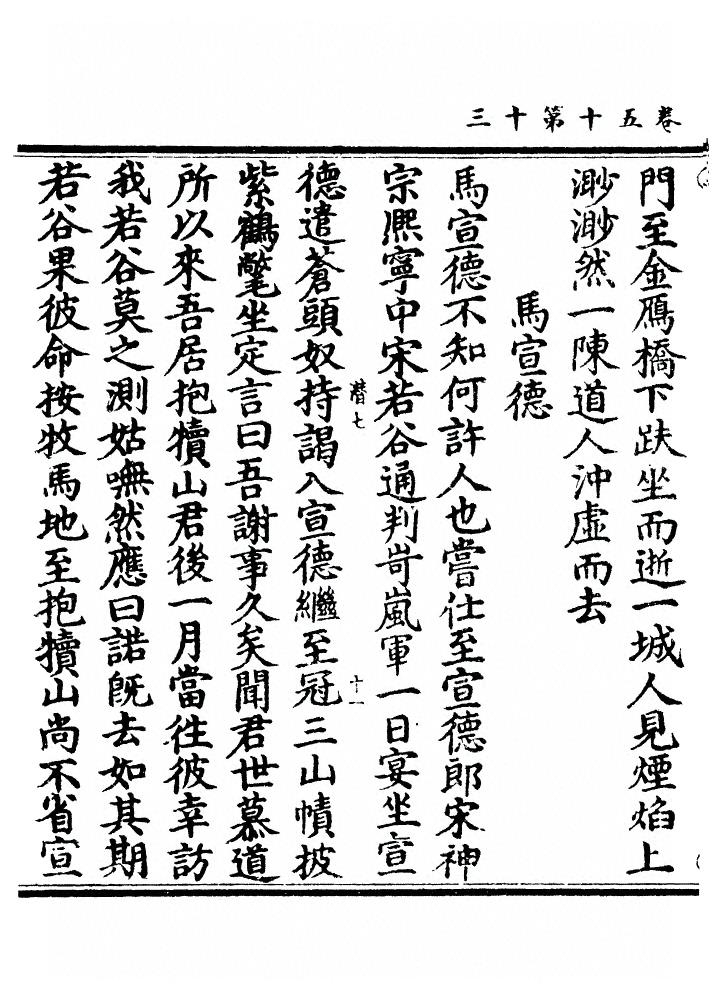 卷五十第十三
門至金鴈橋下趺坐而逝一城人見煙焰上
渺渺然一陳道人沖虛而去
馬宣德
馬宣德不知何許人也嘗仕至宣德郎宋神
宗熈寧中宋若谷通判岢嵐軍一日宴坐宣
德遣蒼頭奴持謁入宣德繼至冠三山幘披
曆七
十一
紫鶴氅坐定言曰吾謝事久矣聞君世慕道
所以來吾居抱犢山君後一月當徃彼幸訪
我若谷莫之測姑嘸然應曰諾旣去如其期
若谷果彼命按牧馬地至抱犢山尚不省宣